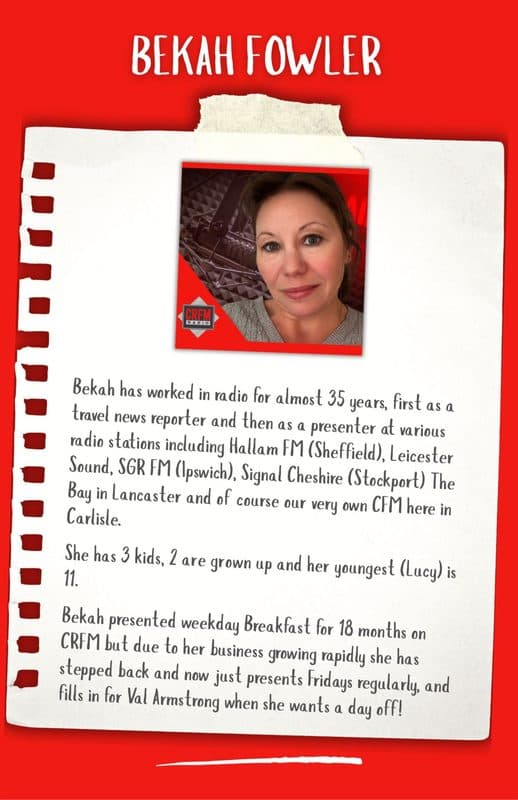 BEKAH FOWLER
CRFM
RADIO
Bekah has worked in radio for almost 35 years, first as a
travel news reporter and then as a presenter at various
radio stations including Hallam FM (Sheffield), Leicester
Sound, SGR FM (Ipswich), Signal Cheshire (Stockport) The
Bay in Lancaster and of course our very own CFM here in
Carlisle.
She has 3 kids, 2 are grown up and her youngest (Lucy) is
11.
Bekah presented weekday Breakfast for 18 months on
CRFM but due to her business growing rapidly she has
stepped back and now just presents Fridays regularly, and
fills in for Val Armstrong when she wants a day off!